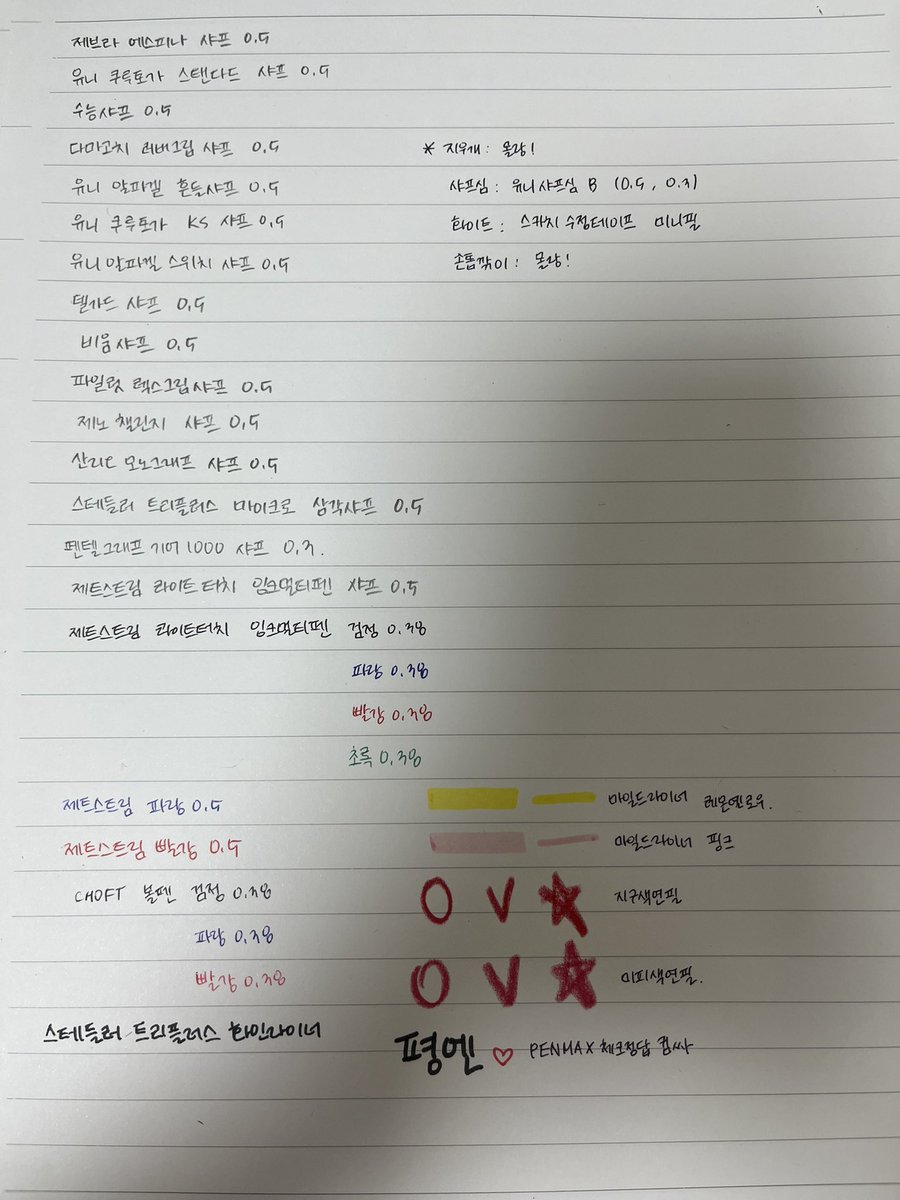 제브라 에스피나 샤프 0.5
유니 쿠루토가 스탠다드 샤프 0.5
수능샤프 0.5
다마고치 러버그립 샤프 0.5
유니 알파겔 흔들샤프 0.5
유니 쿠루토가 KS 샤프 0.5
유니 알파겔 스위치 샤프 0.5
델가드 샤프 0.5
비움샤프 0.5
파일럿 렉스그립샤프 0.5
제노 챌린지 샤프 0.5
산리오 모노그래프 샤프 0.5
스테들러 트리플러스 마이크로 삼각샤프 0.5
펜텔 그래프 기어 1000 샤프 0.3.
제트스트림 라이트터치 잉크멀티펜 샤프 0.5
제트스트림 라이트터치 잉크멀티펜 검정 0.38
파랑 0.38
빨강 0.38
초록 0.38
제트스트림 파랑 0.5
제트스트림 빨강 0.5
CHOFT 볼펜 검정 0.38
파랑 0.38
빨강 0.38
스테들러 트리플러스 화인라이너
* 지우개 : 몰랑!
샤프심 : 유니샤프심 B (0.5, 0.3)
화이트 : 스카치 수정테이프 미니필
손톱깎이 : 몰랑!
마일드라이너 레몬옐로우.
마일드라이너 핑크
O V ☆ 지구색연필
O V ☆ 미피색연필.
평엔 ♡ PENMAX 체크정답 컴싸